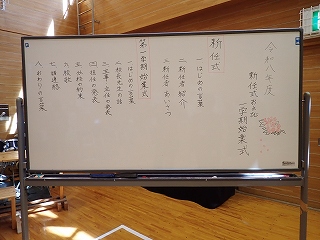 令和八年度
新任式および
一学期始業式
新任式
一はじめの言葉
二新任者紹介
三新任者あいさつ
第一学期始業式
一はじめの言葉
二校長先生の話
三主事・主任の発表
四担任の発表
六校歌
七諸連絡
八おわりの言葉